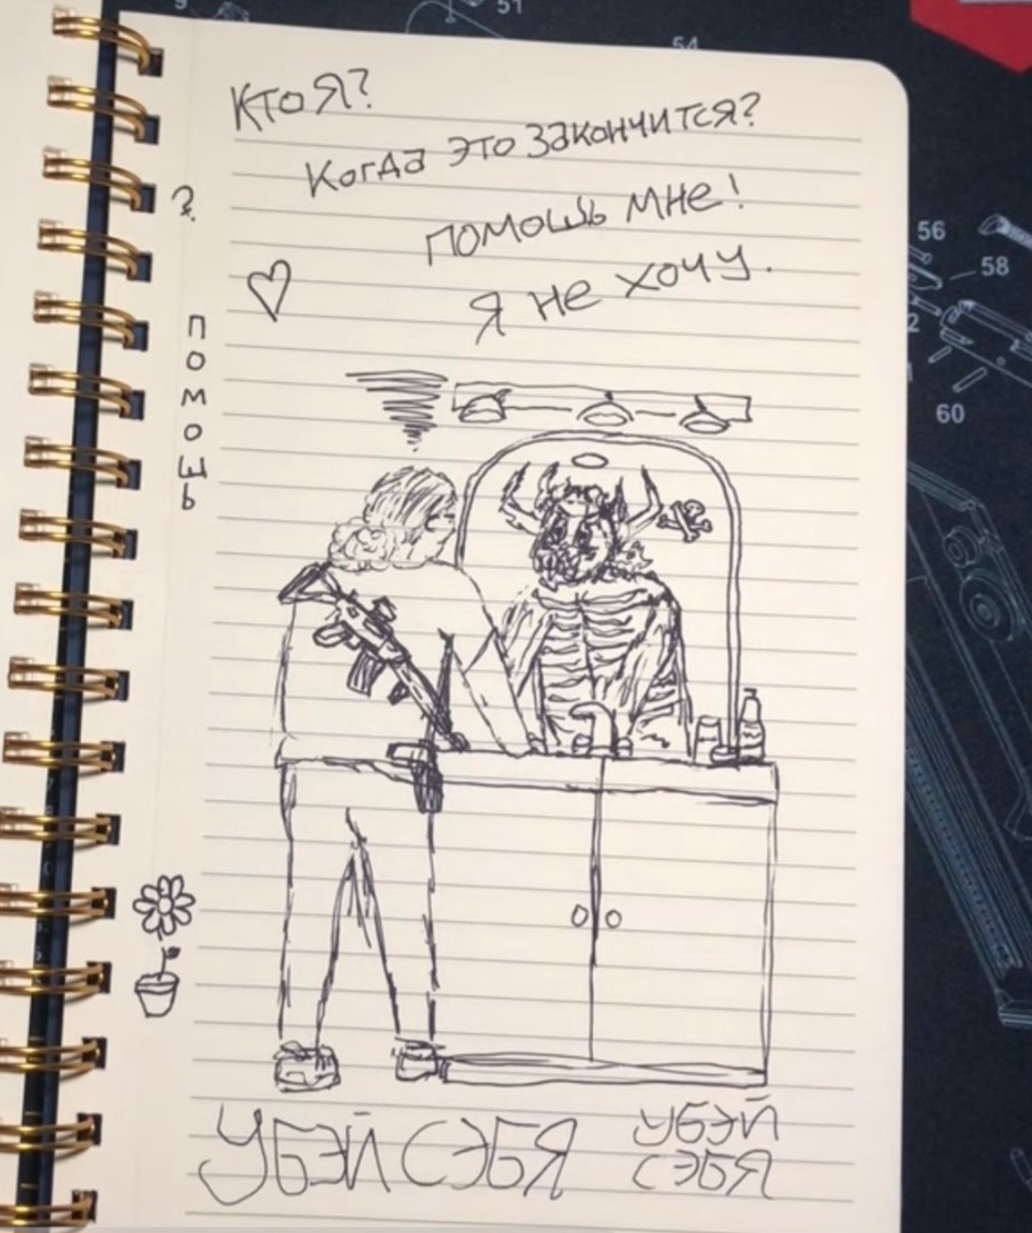 51
54
Кто я?
Когда это закончится?
помошь мне!
Я не хочу.
?
помошь
56
58
60
УБЭЙ СЭБЯ
УБЭЙ
СЭБЯ